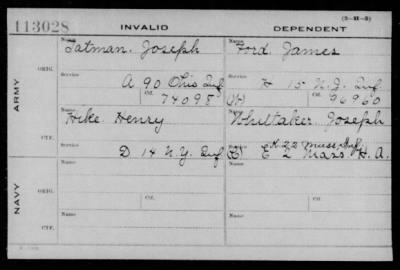 113028
INVALID
DEPENDENT
(3-H-3)
ARMY
ORIG.
Name
Tatman, Joseph
Name
Ford James
Service
A 90 Ohio Inf
Service
H 15 N.J. Inf
Ctf.
74098
(H)
Ctf.
96960
CTF.
Name
Hike Henry
Name
Whittaker Joseph
Service
D 14 N.Y. Inf
(B)
K 22 Mass Inf
E 2 Mass H. A.
NAVY
ORIG.
Name
Name
Service
Ctf.
Service
Ctf.
CTF.
Name
Name